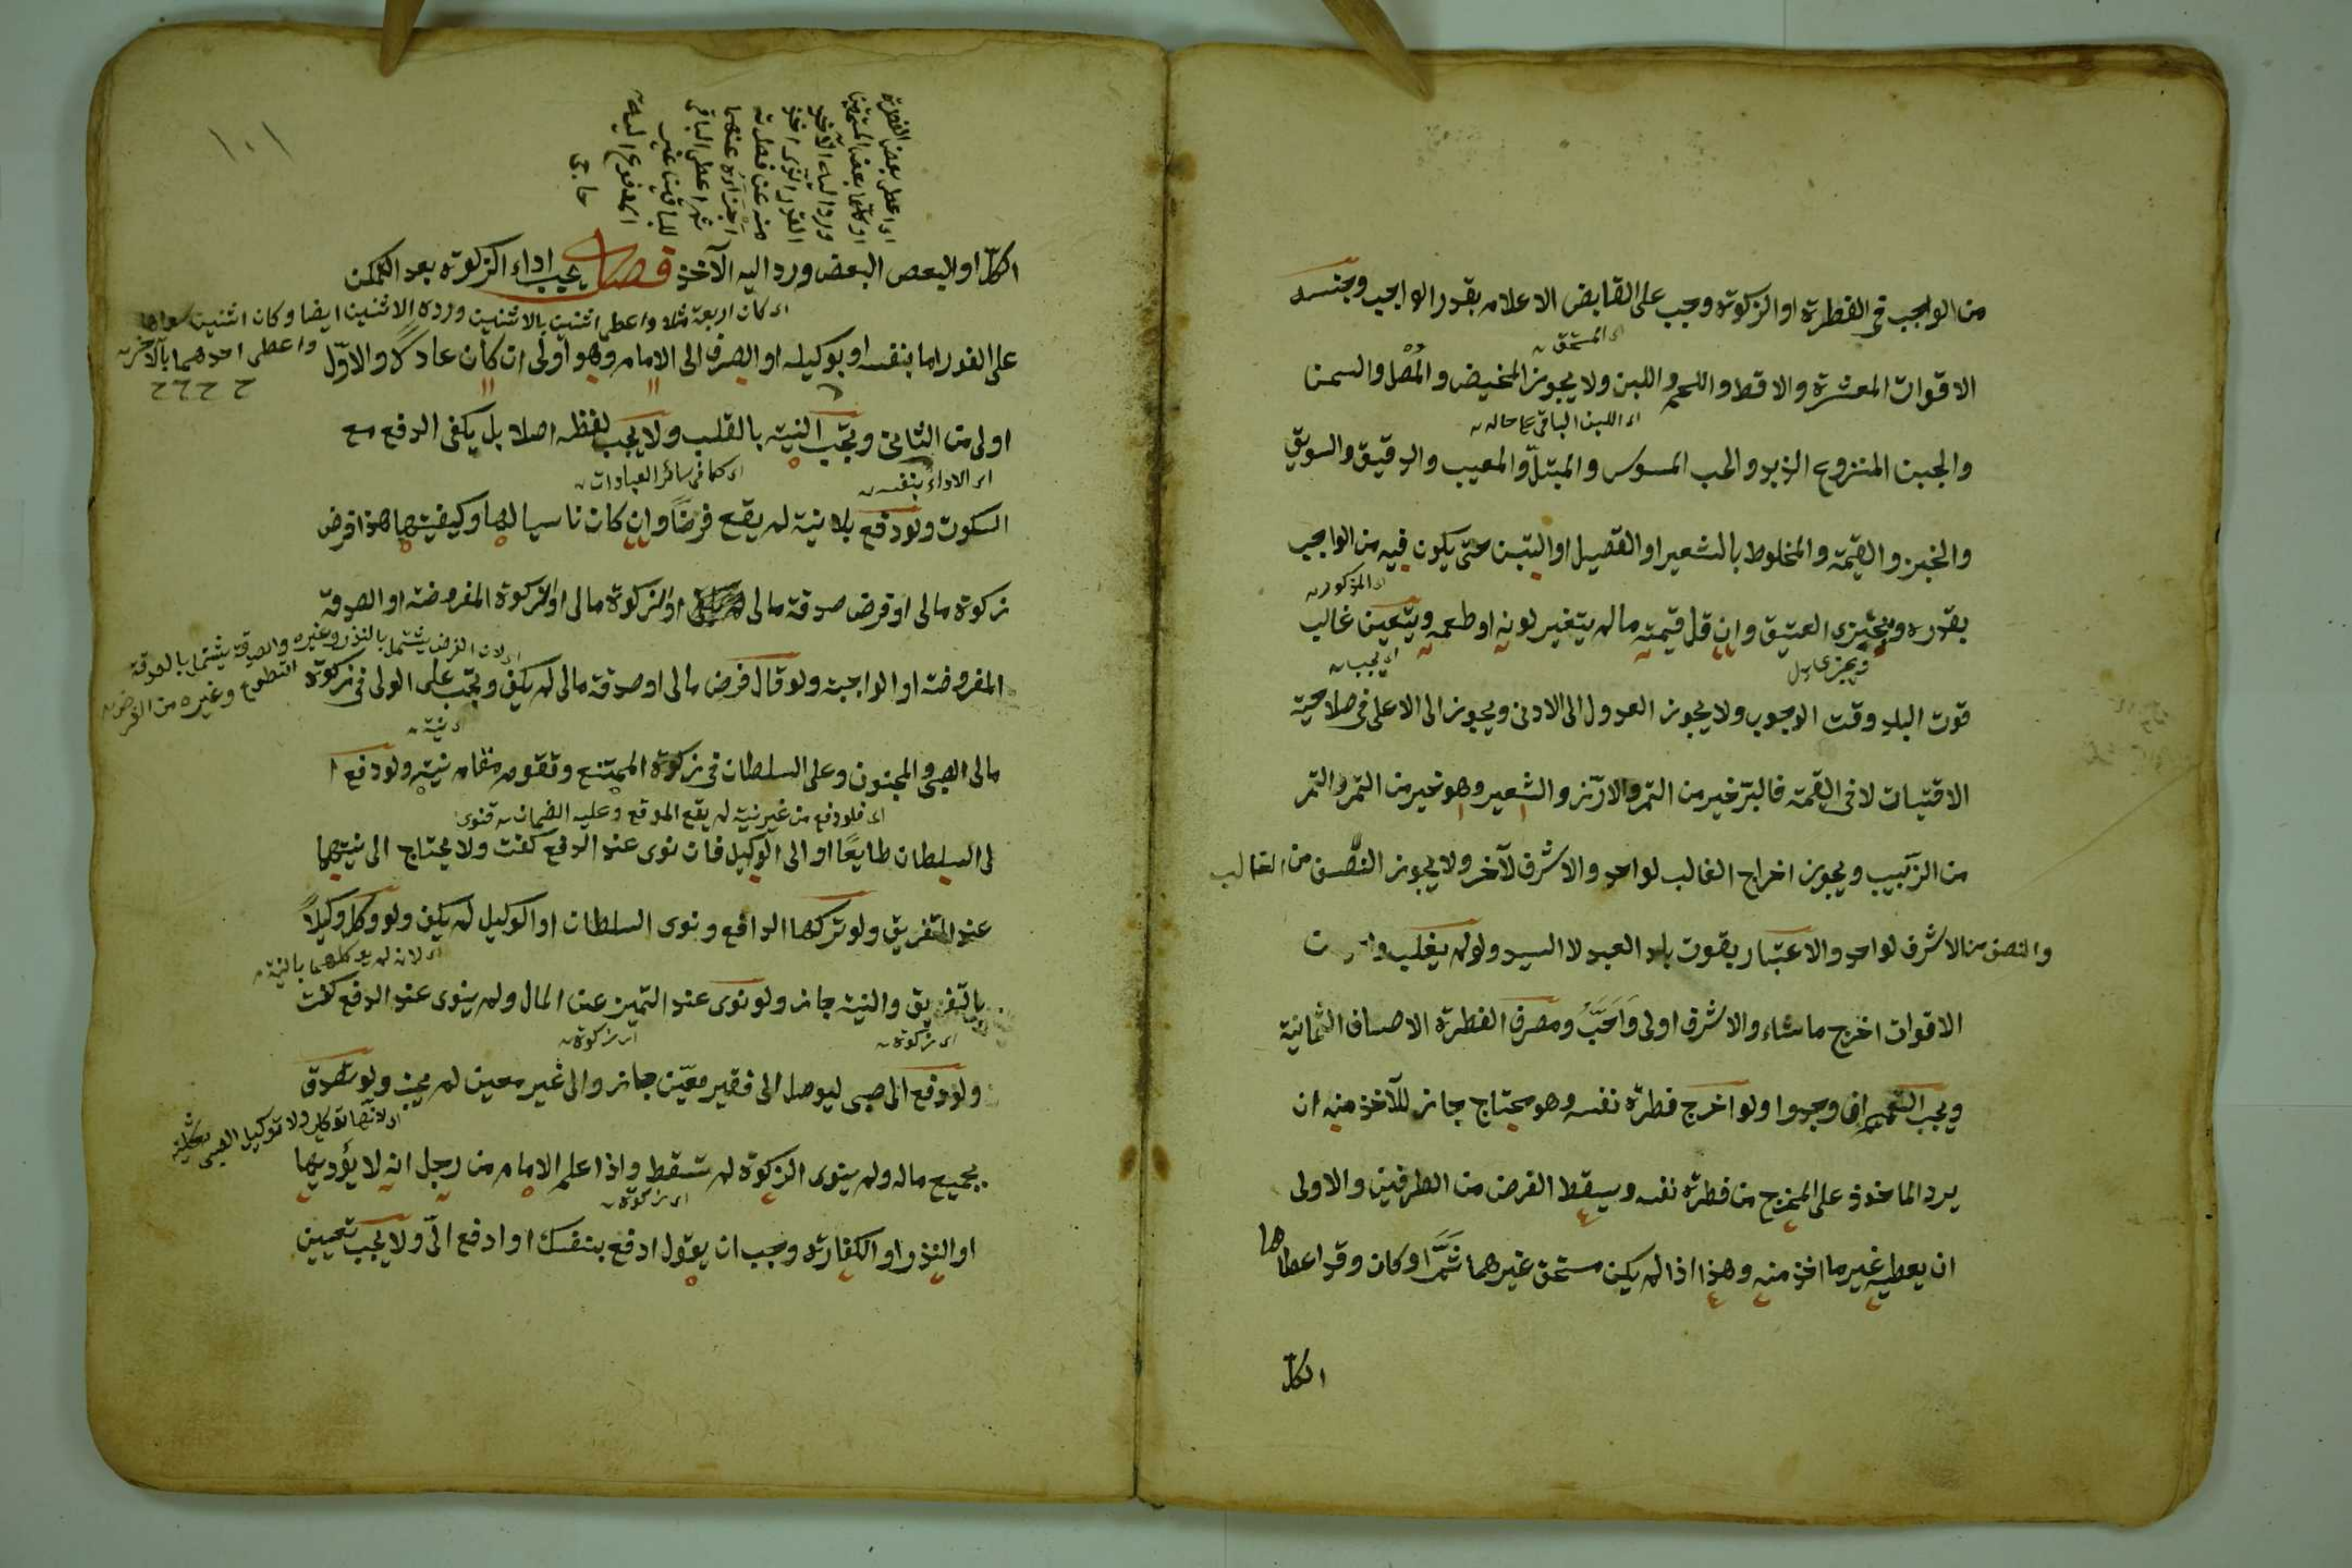 من الواجب في الفطرة او الزكوة وجب على القابض الاعلام بقدر الواجب وجنسه
اى المستحق
الاقوات المعشرة والاقط واللحم واللبن ولا يجوز المخيض والمصل والسمن
اى اللبن الباقى على حاله
والجبن المنزوع الزبد والحب المسوس والمبتل والمعيب والدقيق والسويق
والخبز والقيمة والمخلوط بالشعير او القصيل او التبن حتى يكون فيه من الواجب
اى المذكور
بقدره ويجزى العتيق وان قل قيمته ما لم يتغير لونه او طعمه ويتعين غالب
ويجزى بدل
اى يجب
قوت البلد وقت الوجوب ولا يجوز العدول الى الادنى ويجوز الى الاعلى في صلاحية
الاقتيات لا في القيمة فالبر خير من التمر والارز والشعير وهو خير من التمر والتمر
من الزبيب ويجوز اخراج الغالب لواحد والاشرف لآخر ولا يجوز النصف من الغالب
والنصف من الاشرف لواحد والاعتبار بقوت بلد العبد لا السيد ولو لم يغلب
الاقوات اخرج ما شاء والاشرف اولى واحب ومصرف الفطرة الاصناف الثمانية
ويجب التعميم ان وجدوا ولو اخرج فطرة نفسه وهو محتاج جاز للآخذ منه ان
يرد الماخوذ على المخرج من فطرة نفسه ويسقط الفرض من الطرفين والاولى
ان يعطيه غير ما اخذ منه وهذا اذا لم يكن مستحق غيرهما ثم او كان وقد اعطاها
الكل
١٠١
اى اعطى بعض الفطرة
او كلها بعض المستحقين
ورد اليه الآخذ
القدر الذى اخذ
منه عن فطرته
اجزأه عنهما
ثم اعطى الباقى
للباقين غير
المدفوع اليه
حاجى
الكل او البعض البعض ورد اليه الآخذ فصل يجب اداء الزكوة بعد التمكن
اى كان اربعة مثلا واعطى اثنين بالاثنين ورده الاثنين ايضا وكان اثنين
واعطى احدهما بالآخر
على الفور اما بنفسه او بوكيله او الصرف الى الامام وهو اولى ان كان عادلا والاول
اولى من الثانى ويجب النية بالقلب ولا يجب لفظه اصلا بل يكفى الدفع مع
اى الاداء بنفسه
اى كما في سائر العبادات
السكوت ولو دفع بلا نية لم يقع فرضا وان كان ناسيا لها وكيفيتها هذا فرض
زكوة مالى او فرض صدقة مالى او زكوة مالى او الزكوة المفروضة او الصدقة
اى لان الفرض يشتمل بالنذر وغيره والصدقة يشتمل بالصدقة
التطوع وغيره من الفرض
المفروضة او الواجبة ولو قال فرض مالى او صدقة مالى لم يكف ويجب على الولى في زكوة
اى نيته
مال الصبى والمجنون وعلى السلطان في زكوة الممتنع وتقوم مقام نيته ولو دفع ا
اى فلو دفع من غير نية لم يقع الموقع وعليه الضمان فتوى
لى السلطان طايعا او الى الوكيل فان نوى عند الدفع كفت ولا يحتاج الى نيتهما
عند التفريق ولو تركها الدافع ونوى السلطان او الوكيل لم يكف ولو وكل وكيلا
اى لانه لم يوكلهما بالنية
بالتفريق والنية جاز ولو نوى عند التميز عن المال ولم ينوى عند الدفع كفت
اى زكوة
اى زكوة
ولو دفع الى صبى ليوصل الى فقير معين جاز والى غير معين لم يجز ولو تصدق
اى لانها توكيل ولا توكيل الصبى
بجميع ماله ولم ينوى الزكوة لم تسقط واذا علم الامام من رجل انه لا يؤديها
اى زكوة
او النذر او الكفارة وجب ان يقول ادفع بنفسك او ادفع الى ولا يجب تعيين